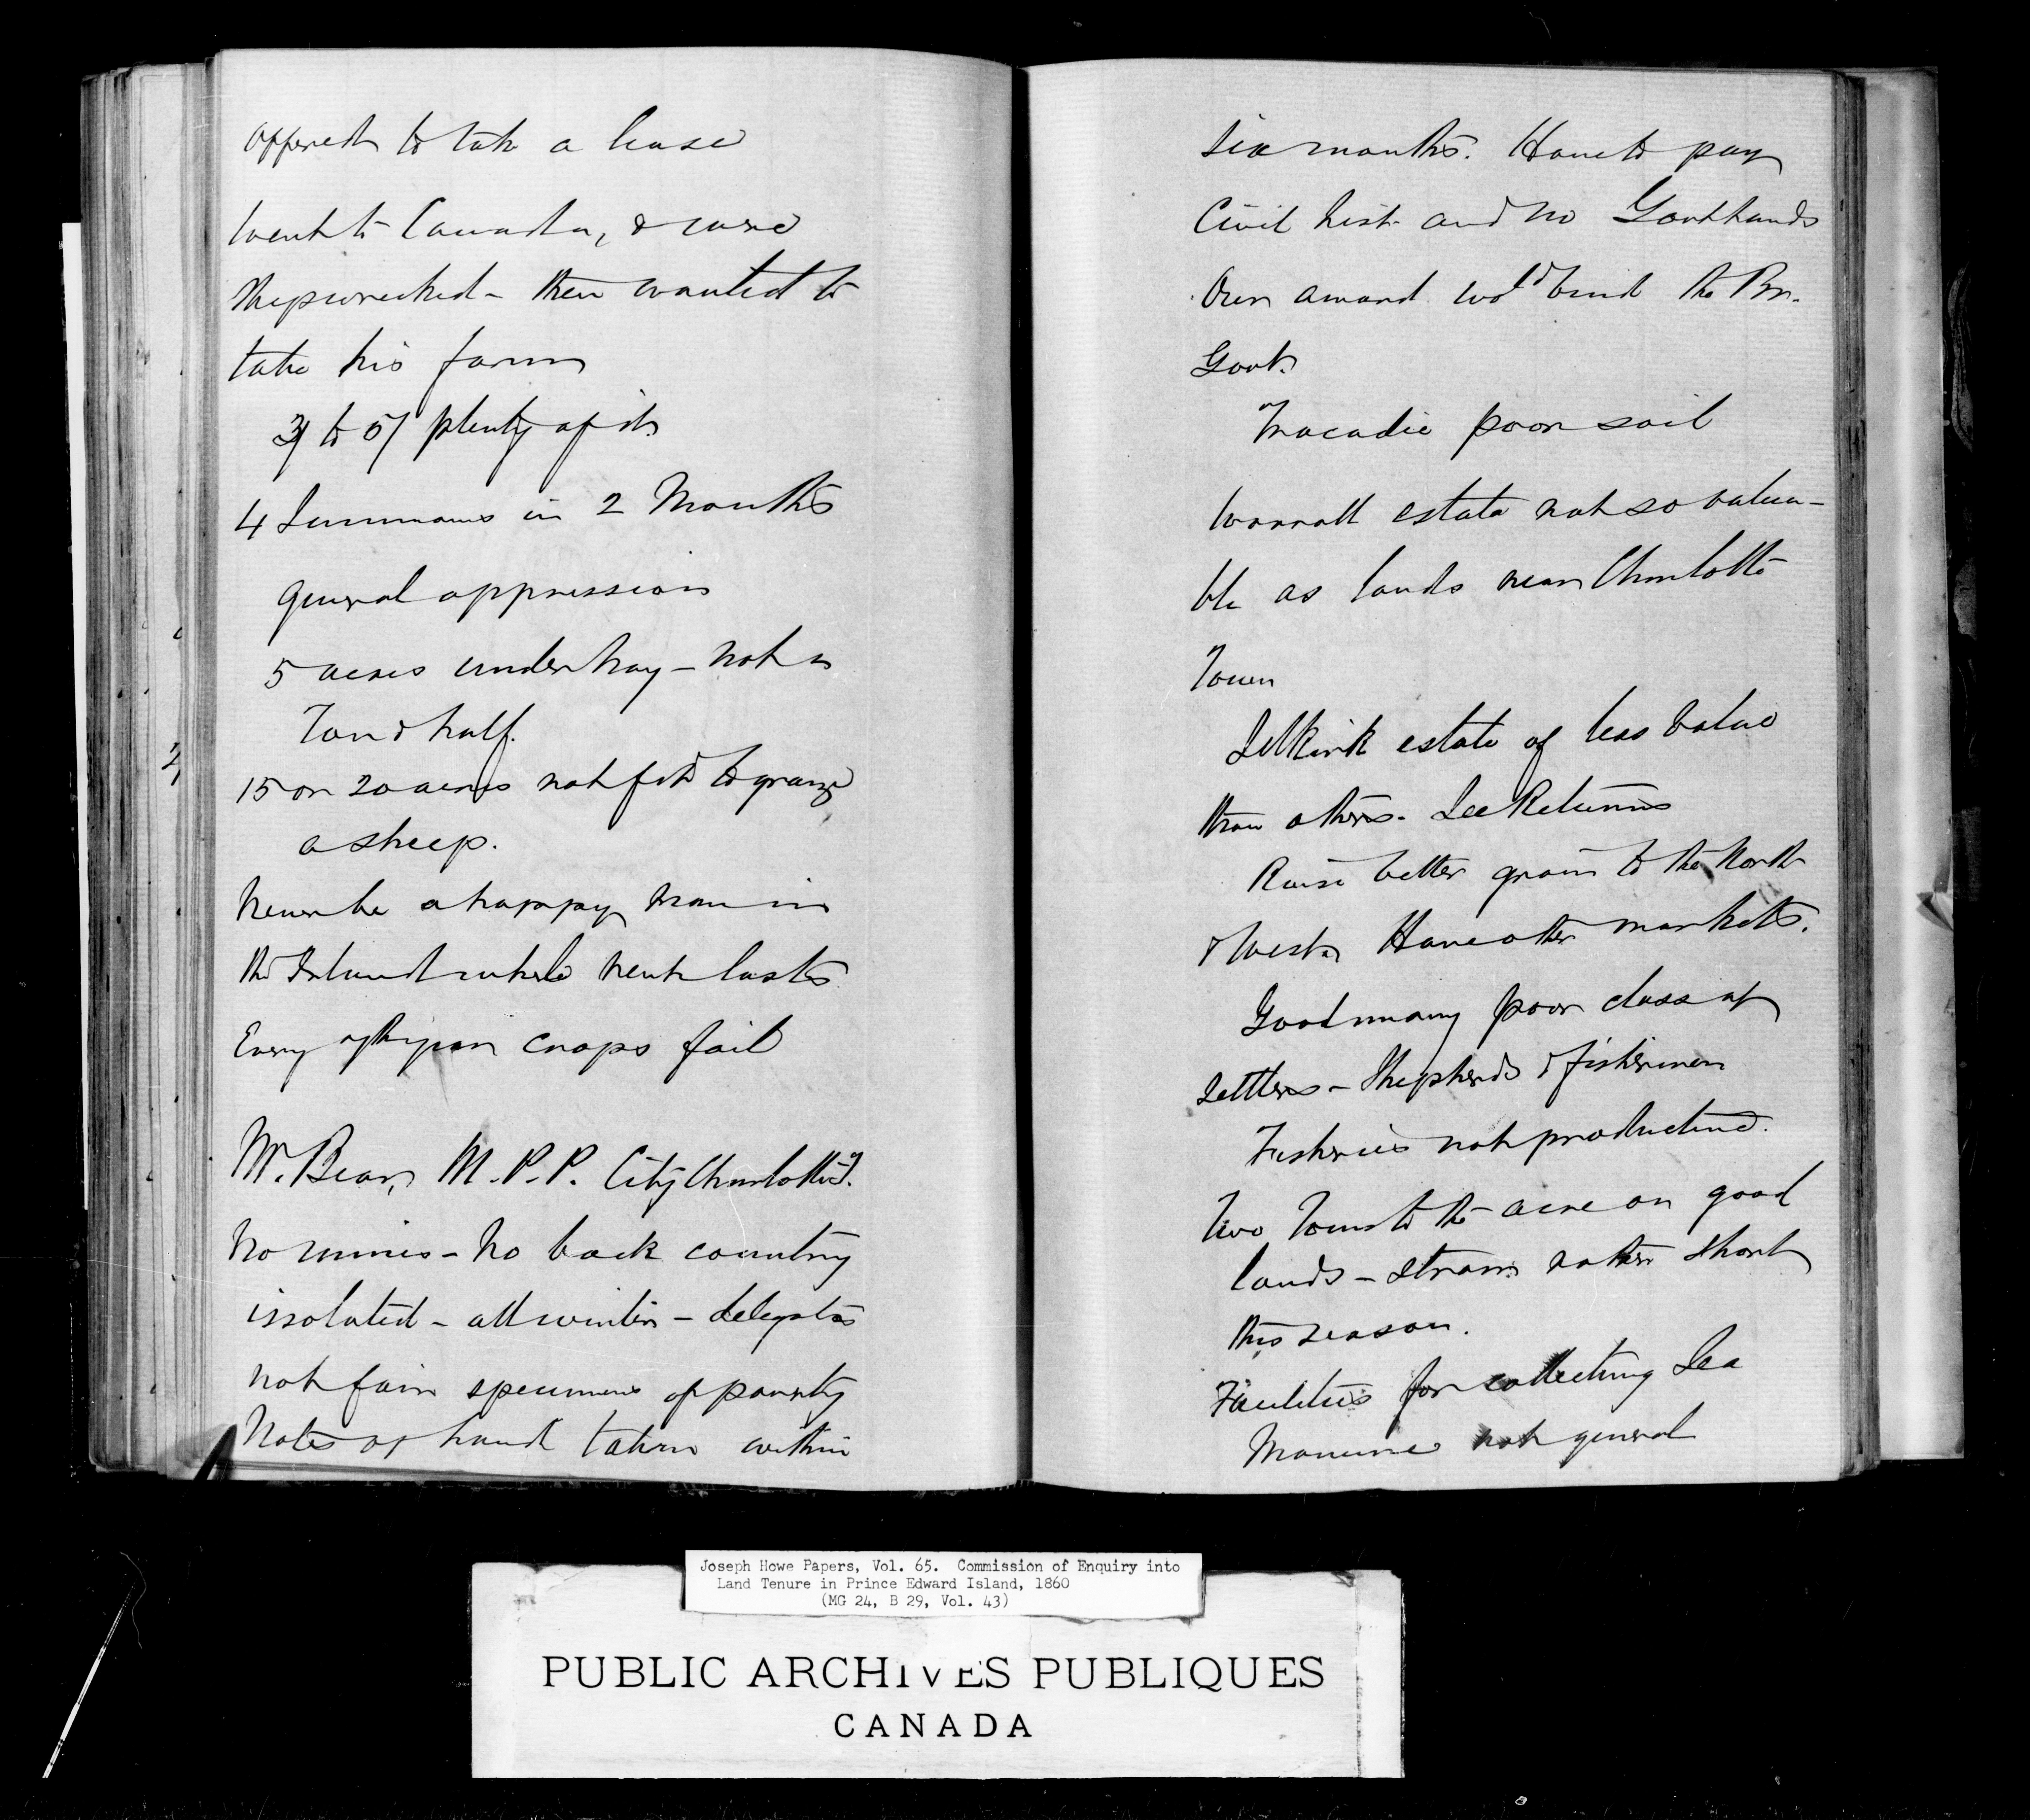 offered to take a lease
went to Canada, & was
shipwrecked - then wanted to
take his farm
3/ to 5/ plenty of it.
4 Summons in 2 Months
general oppression
5 acres under hay - not a
Ton & half.
15 or 20 acres not fit to graze
a sheep.
Never be a happy man in
the Island while rent lasts
Every 7th year crops fail
W. Beer, M.P.P. City Charlotte T.
No mines - No back country
issolated - all winter - delegates
not fair specimens of poverty
Notes of hand taken within
six months. Have to pay
Civil list and no Govt lands
Our award wold bind the Br.
Govt.
Tracadie poor soil
Worrall estate not so valua-
ble as lands near Charlotte
Town
Selkirk estate of less value
than others. See Returns
Raise better grain to the North
& West. Have other markets.
Good many poor class of
Settlers - Shepherds & fishermen
Fisheries not productive.
Two Tons to the acre on good
lands - straw rather short
this season.
Facilities for collecting Sea
Manure not general
Joseph Howe Papers, Vol. 65. Commission of Enquiry into
Land Tenure in Prince Edward Island, 1860
(MG 24, B 29, Vol. 43)
PUBLIC ARCHIVES PUBLIQUES
CANADA